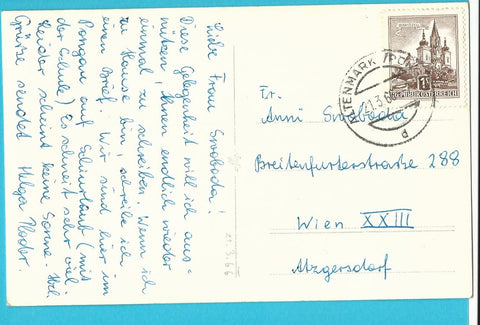 Liebe Frau Swoboda!
Diese Gelegenheit will ich aus-
nützen, Ihnen endlich wieder
einmal zu schreiben. Wenn ich
zu Hause bin, schreibe ich
einen Brief. Wir sind hier im
Pongau auf Schiurlaub (mit
der Schule) Es schneit sehr viel.
leider scheint keine Sonne. Hzl.
Grüße sendet Helga
ALTENMARK /PO
21.3.66
d
1S
REPUBLIK ÖSTERREICH
Fr.
Anni Swoboda
Breitenfurterstraße 288
Wien XXIII
Atzgersdorf
21.3.66